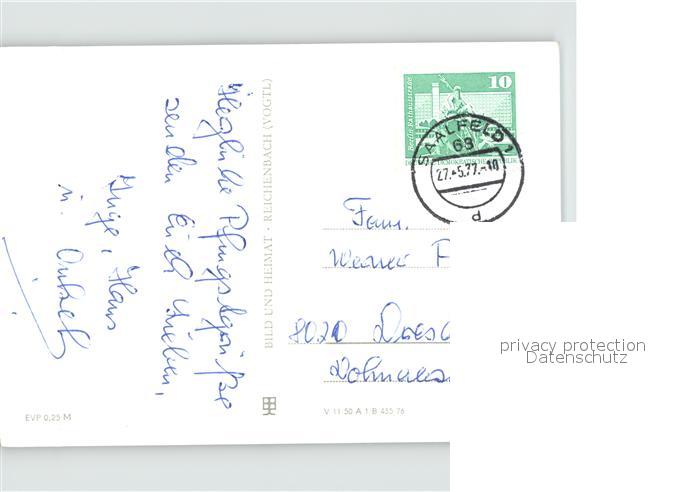 Herzliche Pfingstgrüße
senden Euch Lieben,
Inge, Hans
u.
BILD UND HEIMAT · REICHENBACH (VOGTL)
10
Berlin-Rathausstraße
DEMOKRATISCHE
SAALFELD 1
68
27.-5.77.-10
d
Fam.
Werner F
8020 Dresd
Dohnaer
EVP 0,25 M
V 11 50 A 1 B 455 76
privacy protection
Datenschutz